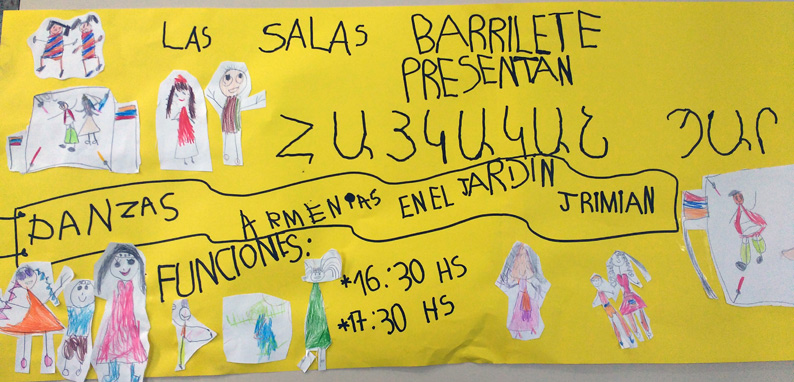 LAS SALAS BARRILETE
PRESENTAN
ՀԱՅԿԱԿԱՆ ՊԱՐ
DANZAS ARMENIAS EN EL JARDIN JRIMIAN
FUNCIONES:
*16:30 HS
*17:30 HS